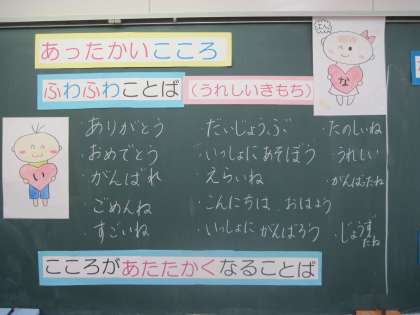 あったかいこころ
ふわふわことば
(うれしいきもち)
な
い
ありがとう
・おめでとう
・がんばれ
・ごめんね
・すごいね
だいじょうぶ
・いっしょにあそぼう
・えらいね
・こんにちは おはよう
・いっしょに がんばろう
・たのしいね
・うれしい
・がんばたね
・じょうずだね
こころがあたたかくなることば